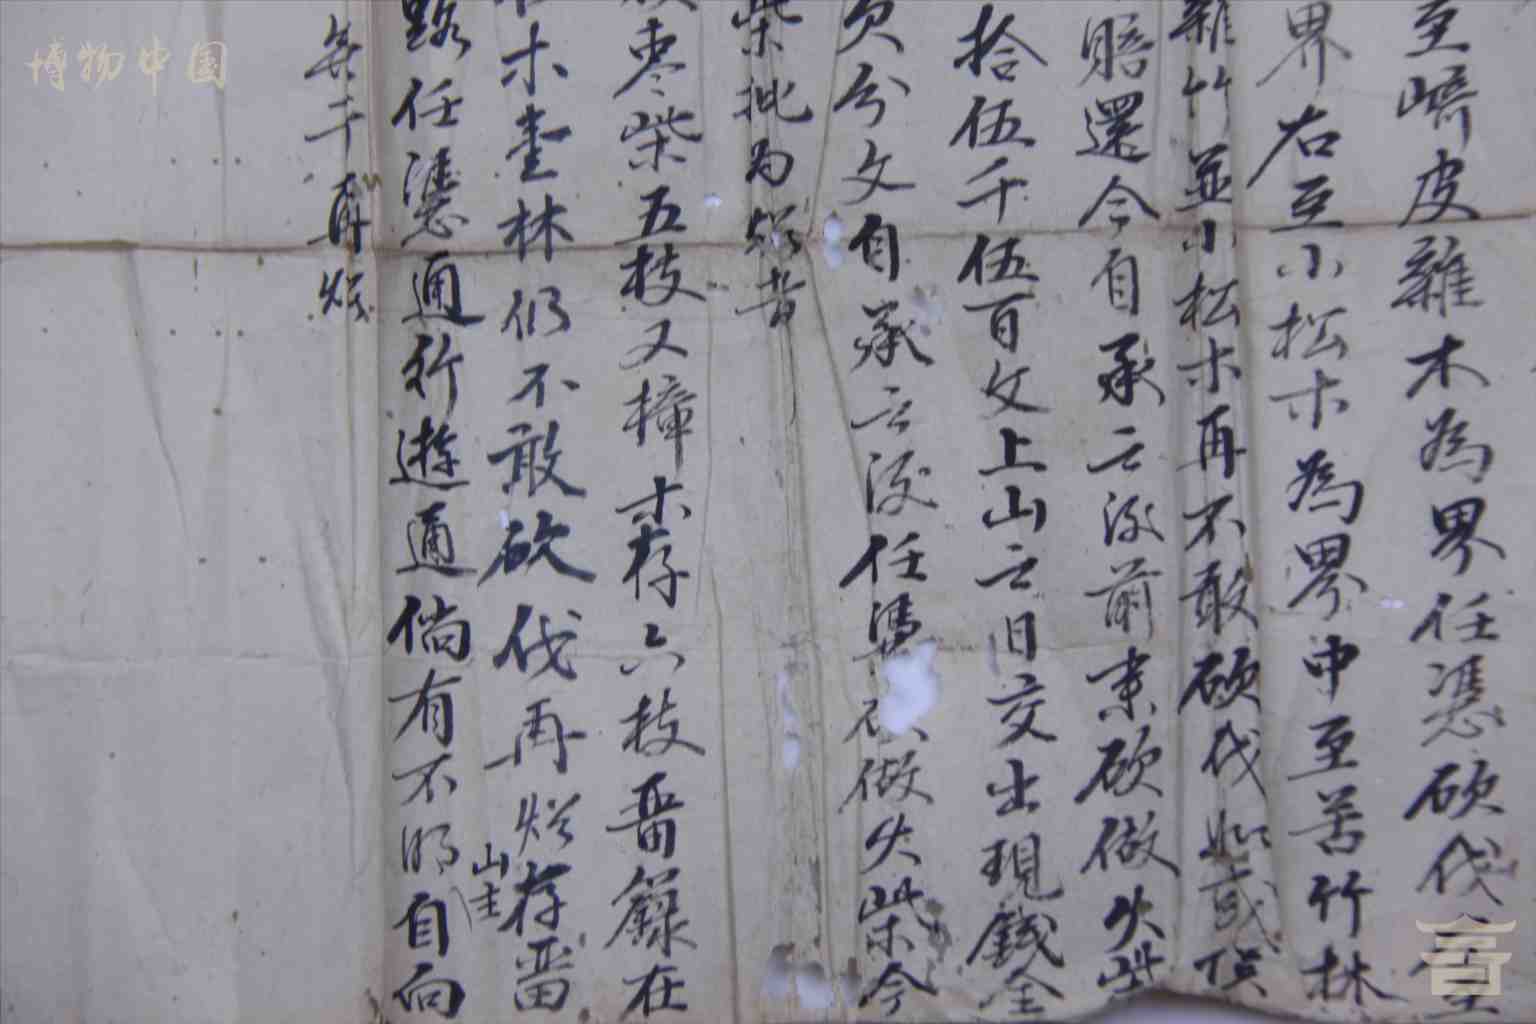 至嵴皮雜木為界任憑砍伐
界右至小松木為界中至苦竹林
雜竹並小松木再不敢砍伐如或
賠還今自承云後前來砍做火柴
拾伍千伍百文上山之日交出現錢全
欠分文自承云後任憑砍做火柴今
柴批為炤者
枣柴五枝又樟木存六枝畱籙在
木壹林仍不敢砍伐再炤存畱
山主
路任憑通行遊通倘有不明自向
與干再炤
博物中国